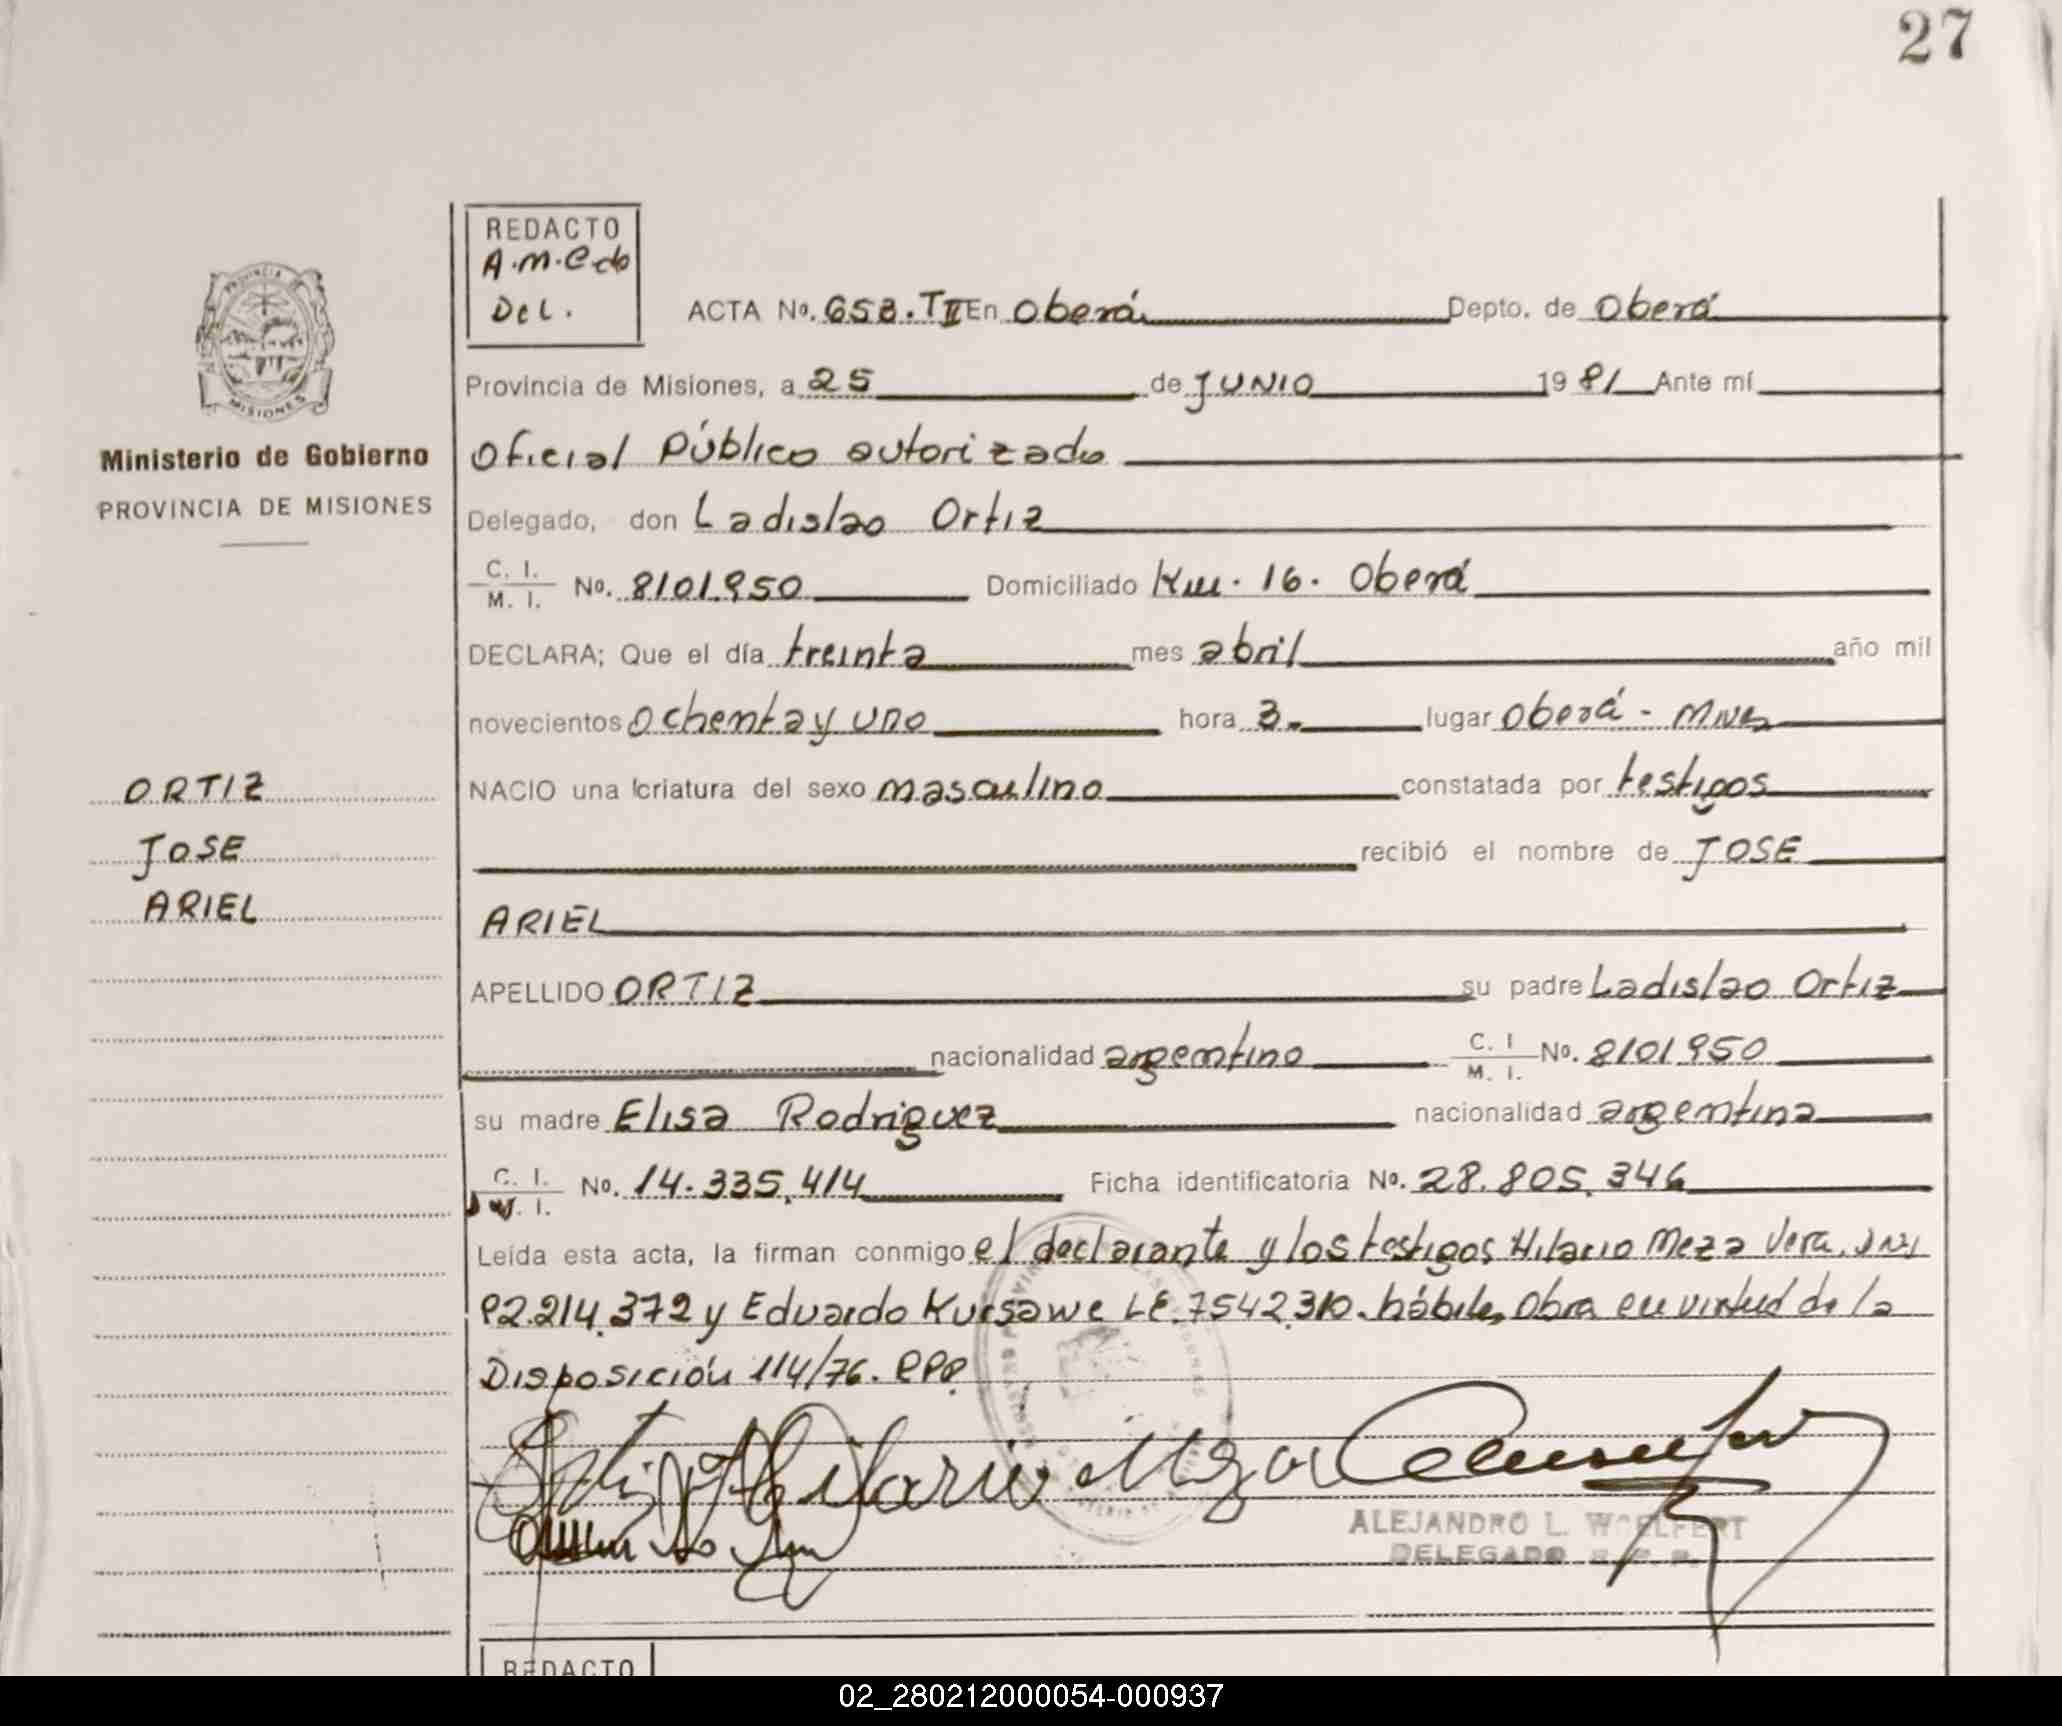 27
REDACTO
A.M.C do
Del.
ACTA No. 658.TII En Oberá Depto. de Oberá
Provincia de Misiones, a 25 de JUNIO 19 81 Ante mí
Oficial Público autorizado
Delegado, don Ladislao Ortiz
C. I.
M. I. No. 8101950 Domiciliado Km. 16. Oberá
DECLARA; Que el día treinta mes abril año mil
novecientos ochenta y uno hora 3. lugar Oberá - Mnes
NACIO una criatura del sexo masculino constatada por testigos
recibió el nombre de JOSE
ARIEL
APELLIDO ORTIZ su padre Ladislao Ortiz
nacionalidad argentino C. I. M. I. No. 8101950
su madre Elisa Rodriguez nacionalidad argentina
C. I. No. 14.335.414 Ficha identificatoria No. 28.805.346
Leída esta acta, la firman conmigo el declarante y los testigos Hilario Meza Vera. DNI
92.214.372 y Eduardo Kursawe LE. 7542.310. hábiles Obra en virtud de la
Disposición 114/76. RPP.
Hilario Meza
ALEJANDRO L. WOELFERT
DELEGADO R. P. P.
REDACTO
PROVINCIA DE
MISIONES
Ministerio de Gobierno
PROVINCIA DE MISIONES
ORTIZ
JOSE
ARIEL
02_280212000054-000937